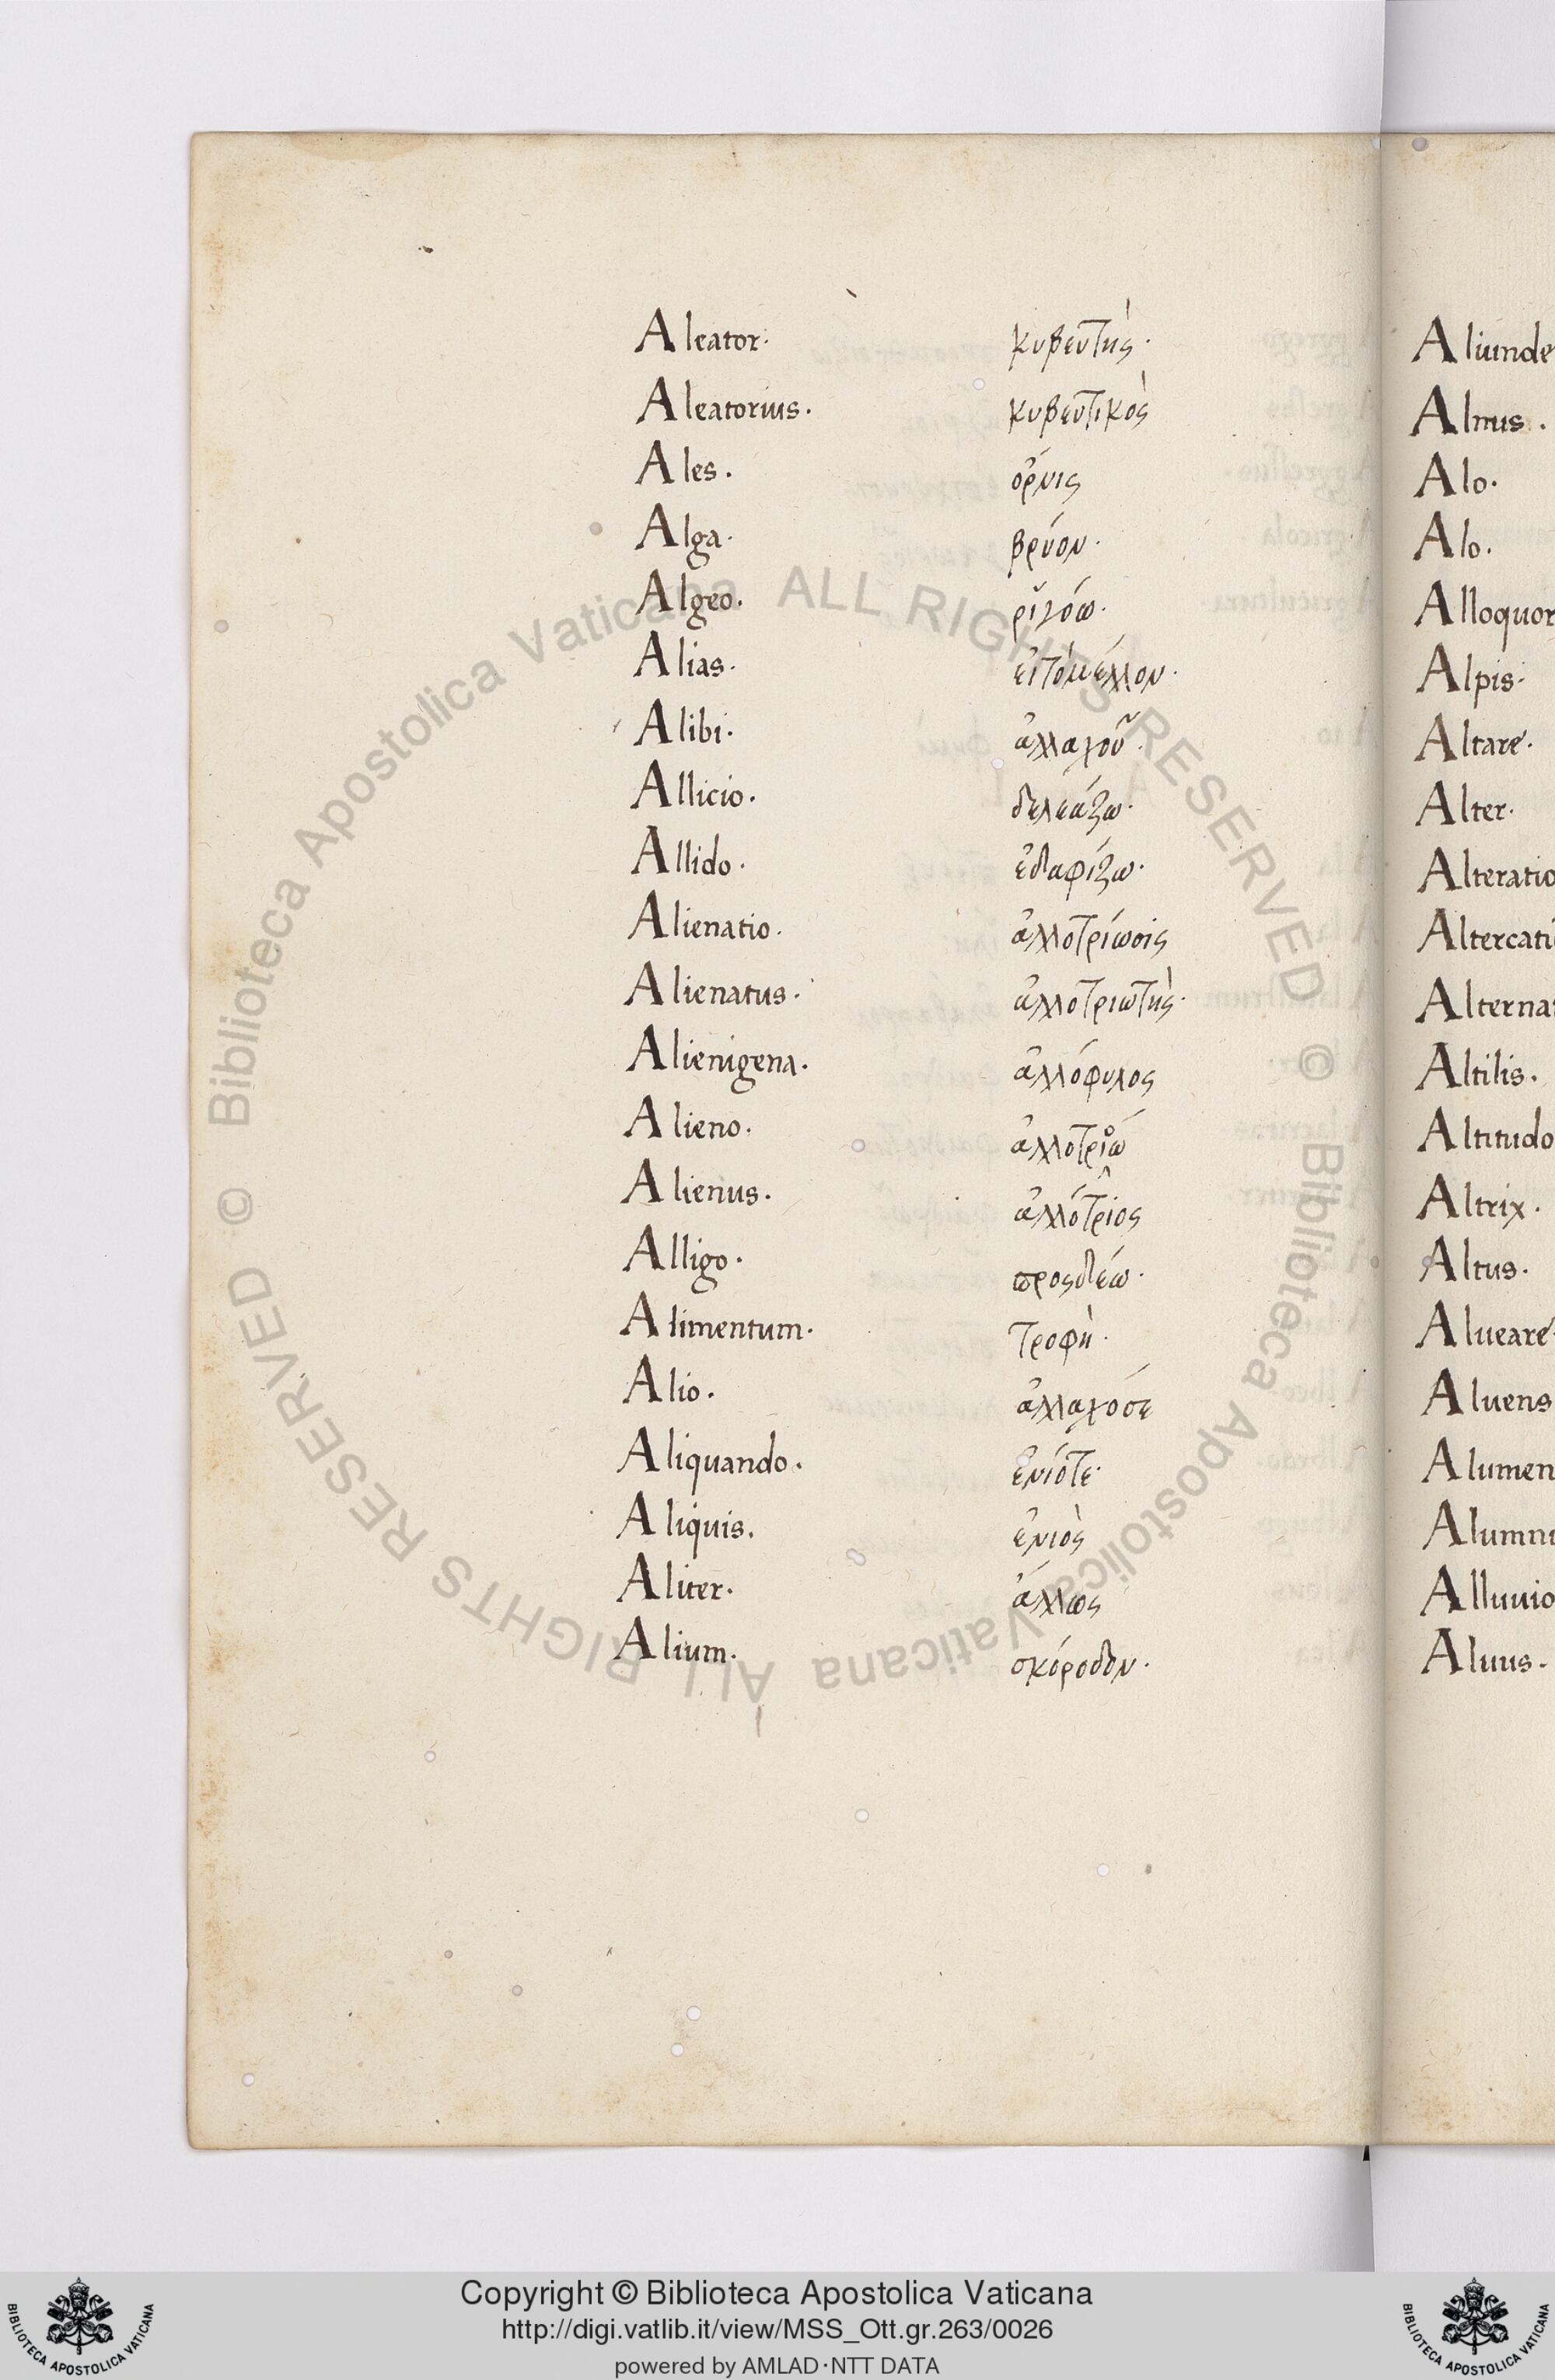 Aleator· κυβευτὴς·
Aleatorius. κυβευτικὸς
Ales. ὄρνις
Alga. βρύον·
Algeo. ῥιγόω·
Alias. εἰτὸμέλλον·
Alibi. ἀλλαχοῦ·
Allicio. δελεάζω·
Allido. ἐδαφίζω·
Alienatio. ἀλλοτρίωσις
Alienatus. ἀλλοτριωτὴς·
Alienigena. ἀλλόφυλος
Alieno. ἀλλοτριόω
Alienus. ἀλλότριος
Alligo. προςδέω·
Alimentum. τροφὴ·
Alio. ἀλλαχόσε
Aliquando. ἐνίοτε·
Aliquis. ἐνιὸς
Aliter. ἄλλως
Alium. σκόροδον·
Aliunde
Alnus.
Alo.
Alo.
Alloquor
Alpis.
Altare.
Alter.
Alteratio
Altercati
Alterna
Altilis.
Altitudo
Altrix.
Altus.
Alueare
Aluens
Alumen
Alumn
Alluuio
Aluus.
© Biblioteca Apostolica Vaticana ALL RIGHTS RESERVED
© Biblioteca Apostolica Vaticana ALL RIGHTS RESERVED
Copyright © Biblioteca Apostolica Vaticana
http://digi.vatlib.it/view/MSS_Ott.gr.263/0026
powered by AMLAD·NTT DATA
BIBLIOTECA APOSTOLICA VATICANA
BIBLIOTECA APOSTOLICA VATICANA